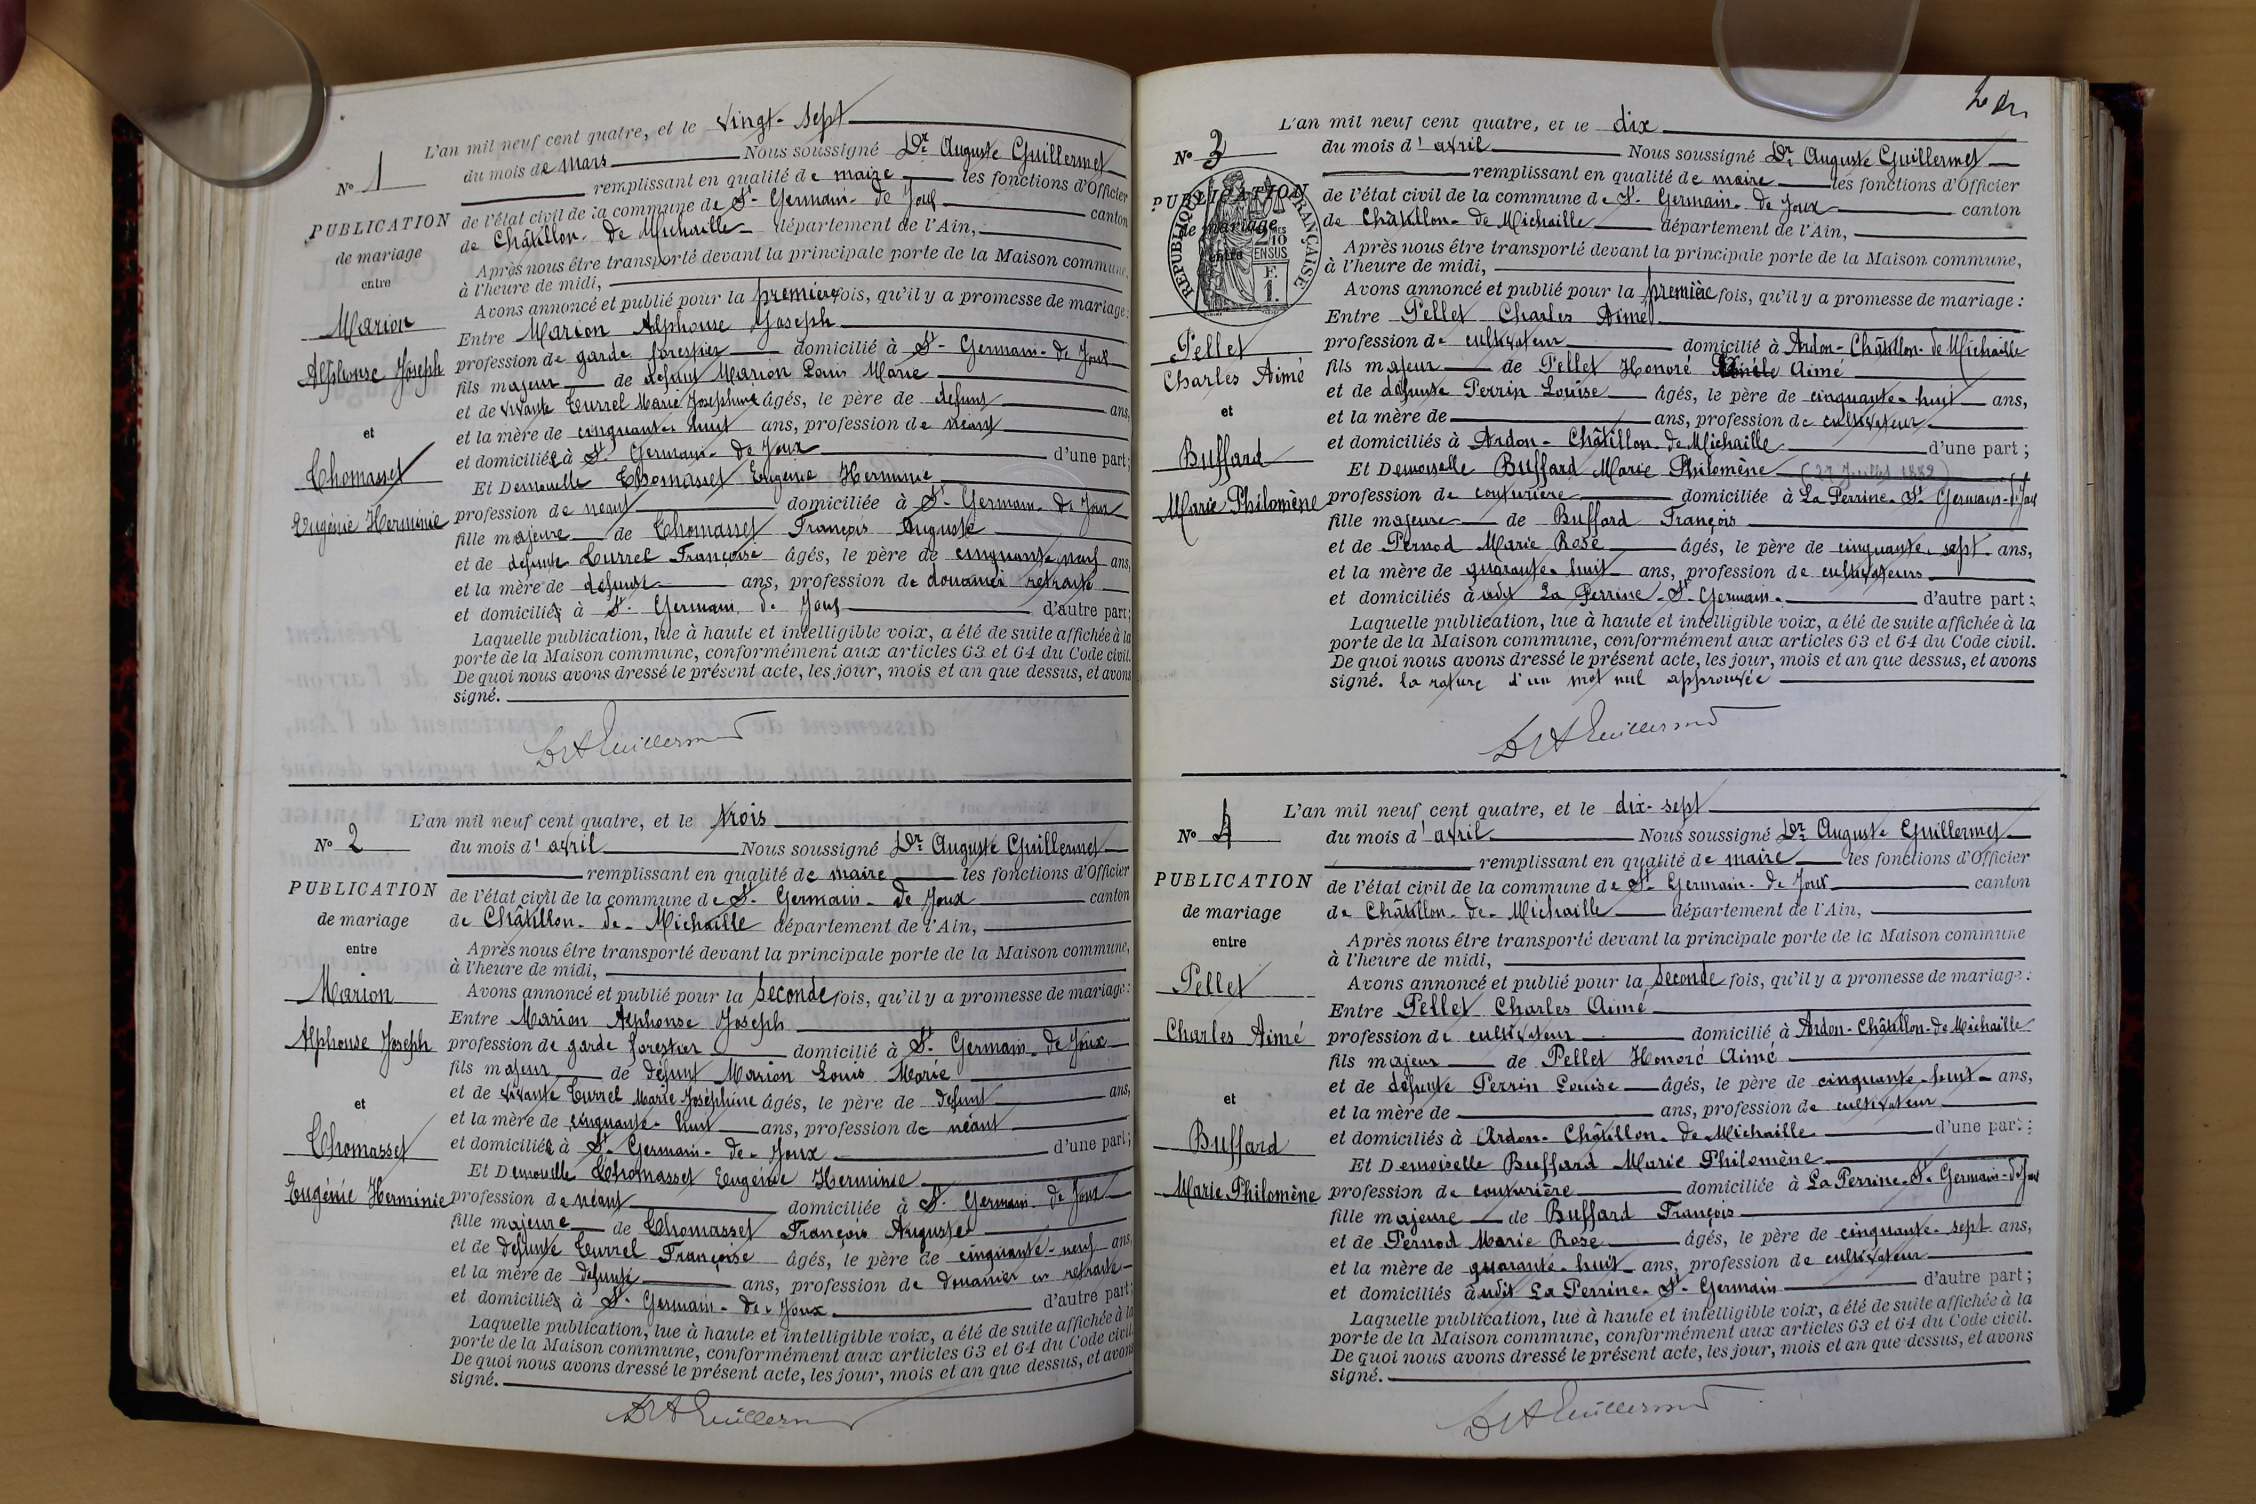 L'an mil neuf cent quatre, et le vingt-sept
du mois de mars Nous soussigné Dr Auguste Guillermet
N° 1
remplissant en qualité de maire les fonctions d'Officier
PUBLICATION
de mariage
entre
Marion
Alphonse Joseph
et
Thomasset
Eugénie Herminie
de l'état civil de la commune de St-Germain-de Joux canton
de Châtillon-de Michaille département de l'Ain,
Après nous être transporté devant la principale porte de la Maison commune,
à l'heure de midi,
Avons annoncé et publié pour la première fois, qu'il y a promesse de mariage:
Entre Marion Alphonse Joseph
profession de garde forestier domicilié à St-Germain-de Joux
fils majeur de défunt Marion Louis Marie
et de vivante Turrel Marie Joséphine âgés, le père de défunt ans,
et la mère de cinquante huit ans, profession de néant
et domiciliée à St Germain-de Joux d'une part;
Et Demoiselle Thomasset Eugénie Herminie
profession de néant domiciliée à St-Germain-de Joux
fille majeure de Thomasset François Auguste
et de défunte Turrel Françoise âgés, le père de cinquante neuf ans,
et la mère de défunte ans, profession de douanier retraité
et domiciliés à St-Germain de Joux d'autre part;
Laquelle publication, lue à haute et intelligible voix, a été de suite affichée à la
porte de la Maison commune, conformément aux articles 63 et 64 du Code civil.
De quoi nous avons dressé le présent acte, les jour, mois et an que dessus, et avons
signé.
Dr A Guillermet
L'an mil neuf cent quatre, et le trois
N° 2
du mois d'avril Nous soussigné Dr Auguste Guillermet
remplissant en qualité de maire les fonctions d'Officier
PUBLICATION
de mariage
entre
Marion
Alphonse Joseph
et
Thomasset
Eugénie Herminie
de l'état civil de la commune de St-Germain-de Joux canton
de Châtillon-de-Michaille département de l'Ain,
Après nous être transporté devant la principale porte de la Maison commune,
à l'heure de midi,
Avons annoncé et publié pour la seconde fois, qu'il y a promesse de mariage:
Entre Marion Alphonse Joseph
profession de garde forestier domicilié à St-Germain-de Joux
fils majeur de défunt Marion Louis Marie
et de vivante Turrel Marie Joséphine âgés, le père de défunt ans,
et la mère de cinquante-huit ans, profession de néant
et domiciliée à St-Germain-de-Joux d'une part;
Et Demoiselle Thomasset Eugénie Herminie
profession de néant domiciliée à St-Germain-de Joux
fille majeure de Thomasset François Auguste
et de défunte Turrel Françoise âgés, le père de cinquante-neuf ans,
et la mère de défunte ans, profession de douanier en retraite
et domiciliés à St-Germain-de-Joux d'autre part;
Laquelle publication, lue à haute et intelligible voix, a été de suite affichée à la
porte de la Maison commune, conformément aux articles 63 et 64 du Code civil.
De quoi nous avons dressé le présent acte, les jour, mois et an que dessus, et avons
signé.
Dr A Guillermet
L'an mil neuf cent quatre, et le dix
N° 3
du mois d'avril Nous soussigné Dr Auguste Guillermet
remplissant en qualité de maire les fonctions d'Officier
PUBLICATION
de mariage
entre
RÉPUBLIQUE FRANÇAISE
2/10 EN SUS
F.
1.
Pellet
Charles Aimé
et
Buffard
Marie Philomène
de l'état civil de la commune de St-Germain-de Joux canton
de Châtillon-de Michaille département de l'Ain,
Après nous être transporté devant la principale porte de la Maison commune,
à l'heure de midi,
Avons annoncé et publié pour la première fois, qu'il y a promesse de mariage:
Entre Pellet Charles Aimé
profession de cultivateur domicilié à Ardon-Châtillon-de Michaille
fils majeur de Pellet Honoré Aimé
et de défunte Perrin Louise âgés, le père de cinquante-huit ans,
et la mère de ans, profession de cultivateur
et domiciliés à Ardon-Châtillon-de Michaille d'une part;
Et Demoiselle Buffard Marie Philomène (27 Juillet 1882)
profession de couturière domiciliée à La Perrine-St Germain-d'Joux
fille majeure de Buffard François
et de Pernod Marie Rose âgés, le père de cinquante-sept ans,
et la mère de quarante-huit ans, profession de cultivateurs
et domiciliés à udit La Perrine-St-Germain- d'autre part;
Laquelle publication, lue à haute et intelligible voix, a été de suite affichée à la
porte de la Maison commune, conformément aux articles 63 et 64 du Code civil.
De quoi nous avons dressé le présent acte, les jour, mois et an que dessus, et avons
signé. la rature d'un mot nul approuvée
Dr A Guillermet
L'an mil neuf cent quatre, et le dix-sept
N° 4
du mois d'avril Nous soussigné Dr Auguste Guillermet
remplissant en qualité de maire les fonctions d'Officier
PUBLICATION
de mariage
entre
Pellet
Charles Aimé
et
Buffard
Marie Philomène
de l'état civil de la commune de St-Germain-de Joux canton
de Châtillon-de-Michaille département de l'Ain,
Après nous être transporté devant la principale porte de la Maison commune
à l'heure de midi,
Avons annoncé et publié pour la seconde fois, qu'il y a promesse de mariage:
Entre Pellet Charles Aimé
profession de cultivateur domicilié à Ardon-Châtillon-de Michaille
fils majeur de Pellet Honoré Aimé
et de défunte Perrin Louise âgés, le père de cinquante-huit ans,
et la mère de ans, profession de cultivateur
et domiciliés à Ardon-Châtillon-de Michaille d'une part;
Et Demoiselle Buffard Marie Philomène
profession de couturière domiciliée à La Perrine-St-Germain-d'Joux
fille majeure de Buffard François
et de Pernod Marie Rose âgés, le père de cinquante-sept ans,
et la mère de quarante-huit ans, profession de cultivateur
et domiciliés à udit La Perrine-St-Germain d'autre part;
Laquelle publication, lue à haute et intelligible voix, a été de suite affichée à la
porte de la Maison commune, conformément aux articles 63 et 64 du Code civil.
De quoi nous avons dressé le présent acte, les jour, mois et an que dessus, et avons
signé.
Dr A Guillermet